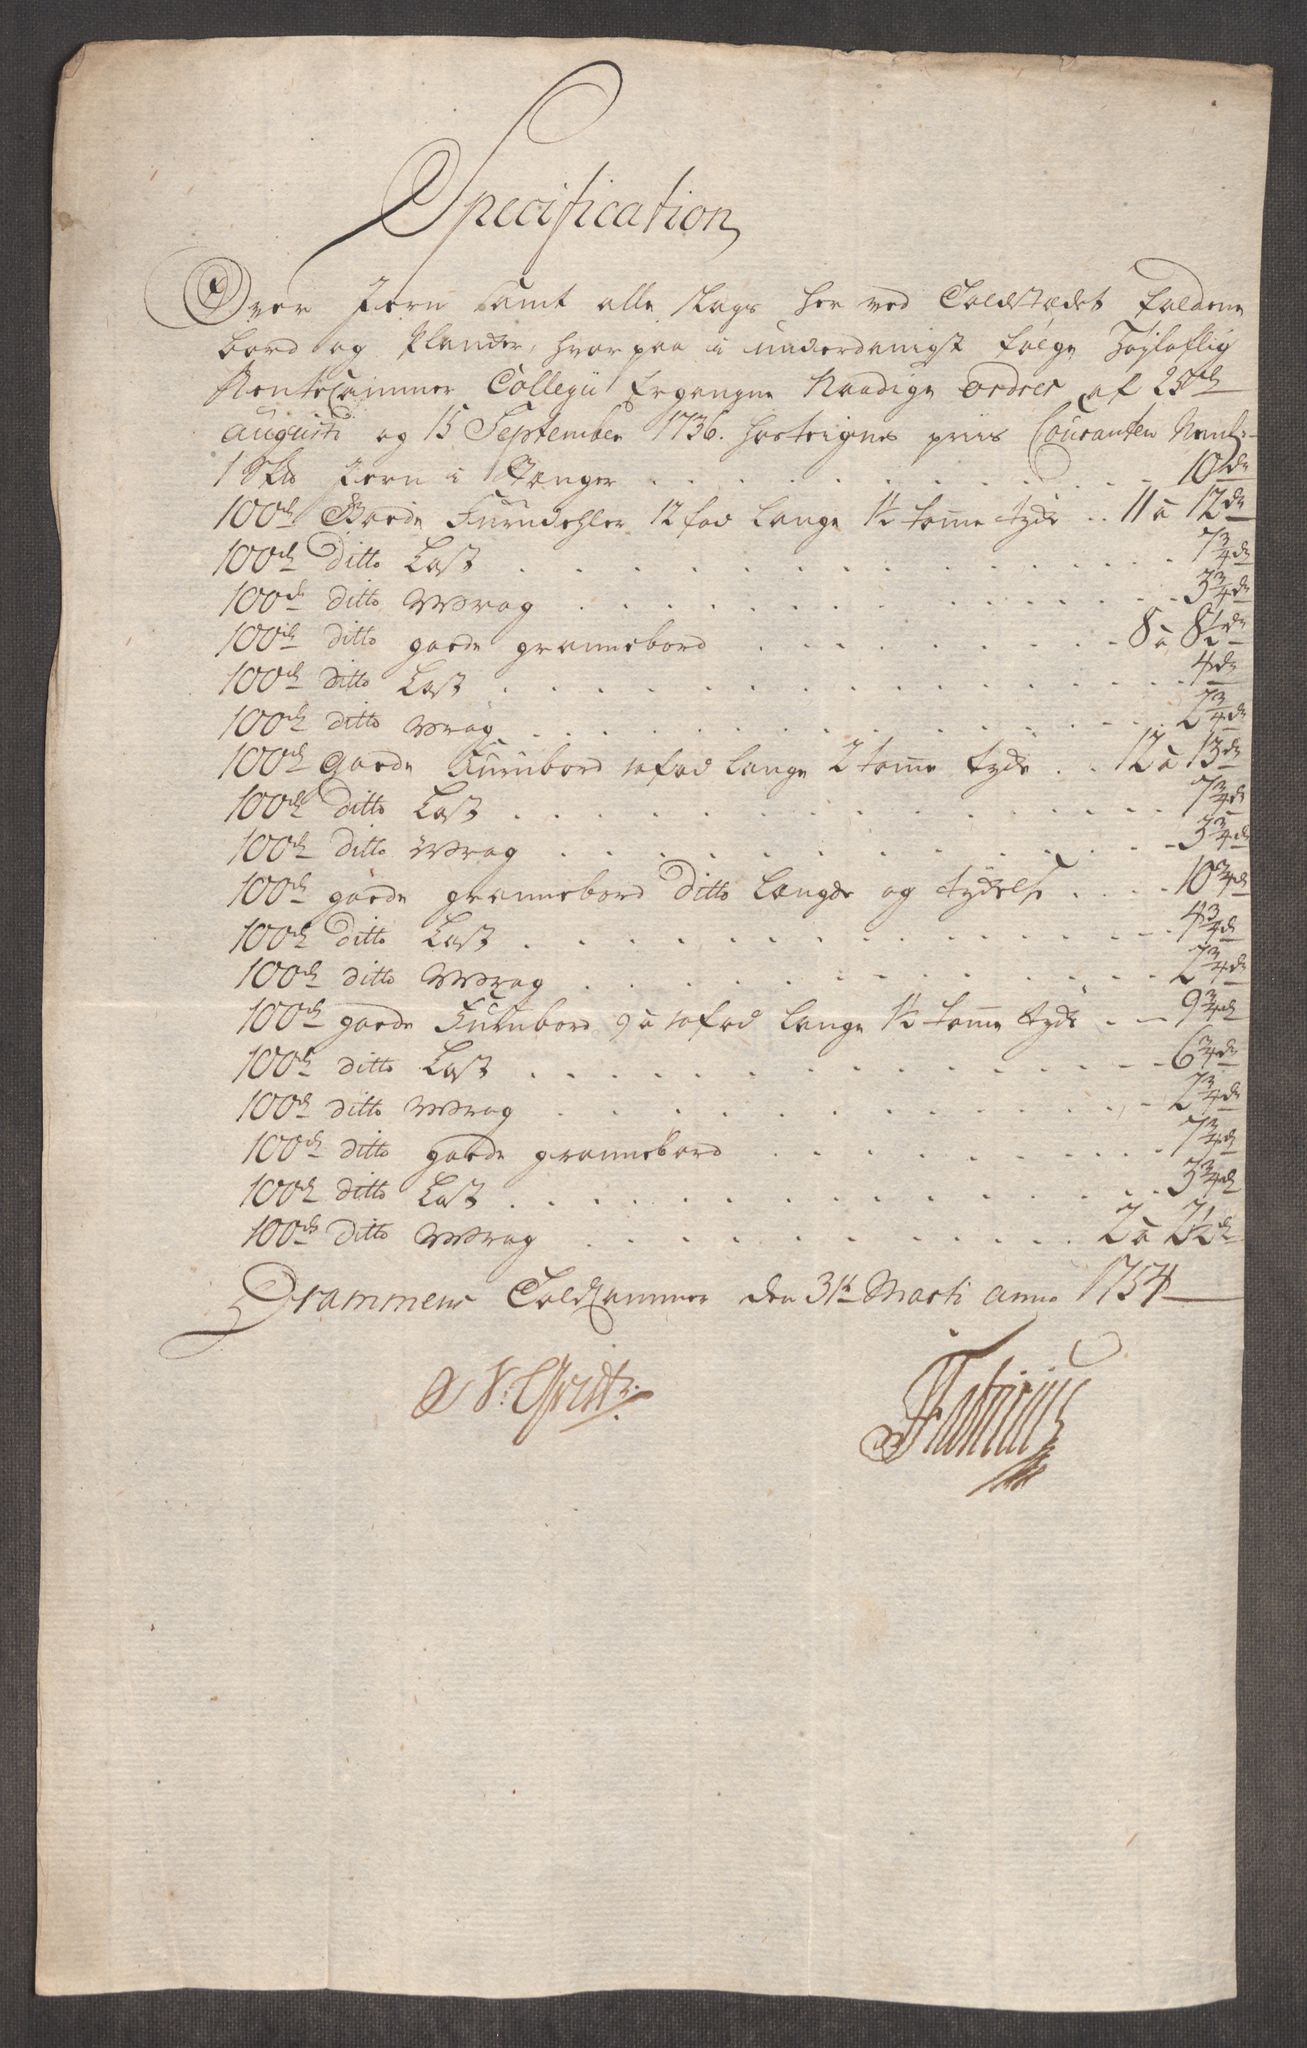 Specification
Over Jern samt alle slags her ved Toldstædet faldene
bord og Plancker, hvor paa i underdanigst følge Høyloflig
Rente Cammer Collegii Ergangne Naadige ordres af 25de
augusti og 15 September 1736. hosteignes priis Couranten Neml:
1 Skd Jern i Stænger . . . 10 dr
100de Goede Furudehler 12 fod Lange 1½ tomme tyde . . 11 a 12 dr
100de Ditto Last . . . 7¾ dr
100de ditto Wrag . . . 3¾ dr
100de ditto goede grannebord . . . 8 a 8½ dr
100de ditto Last . . . 4 dr
100de ditto Wrag . . . 2¾ dr
100de goede Furubord 10 fod Lange 2 tomme tyde . . 12 a 13 dr
100de ditto Last . . . 7¾ dr
100de ditto Wrag . . . 3¾ dr
100de goede grannebord Ditto Længde og tydelse . . . 10¾ dr
100de Ditto Last . . . 4¾ dr
100de ditto Wrag . . . 2¾ dr
100de goede Furubord 9 a 10 fod Lange 1½ tomme tyde . . 9¾ dr
100de ditto Last . . . 6¾ dr
100de ditto Wrag . . . 2¾ dr
100de ditto goede grannebord . . . 7¾ dr
100de ditto Last . . . 3¾ dr
100de Ditto Wrag . . . 2 a 2½ dr
Drammens Told Cammer den 31te Marti anno 1754
Fabricius